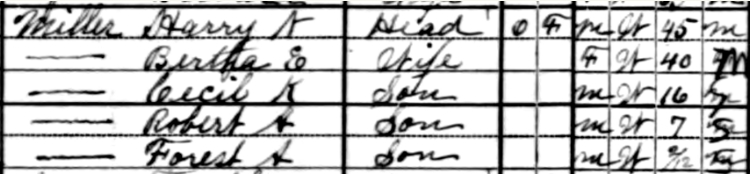 Miller Harry N Head O F M W 45 M
— Bertha E Wife F W 40 M
— Cecil K Son M W 16
— Robert A Son M W 7
— Forest A Son M W 2/12